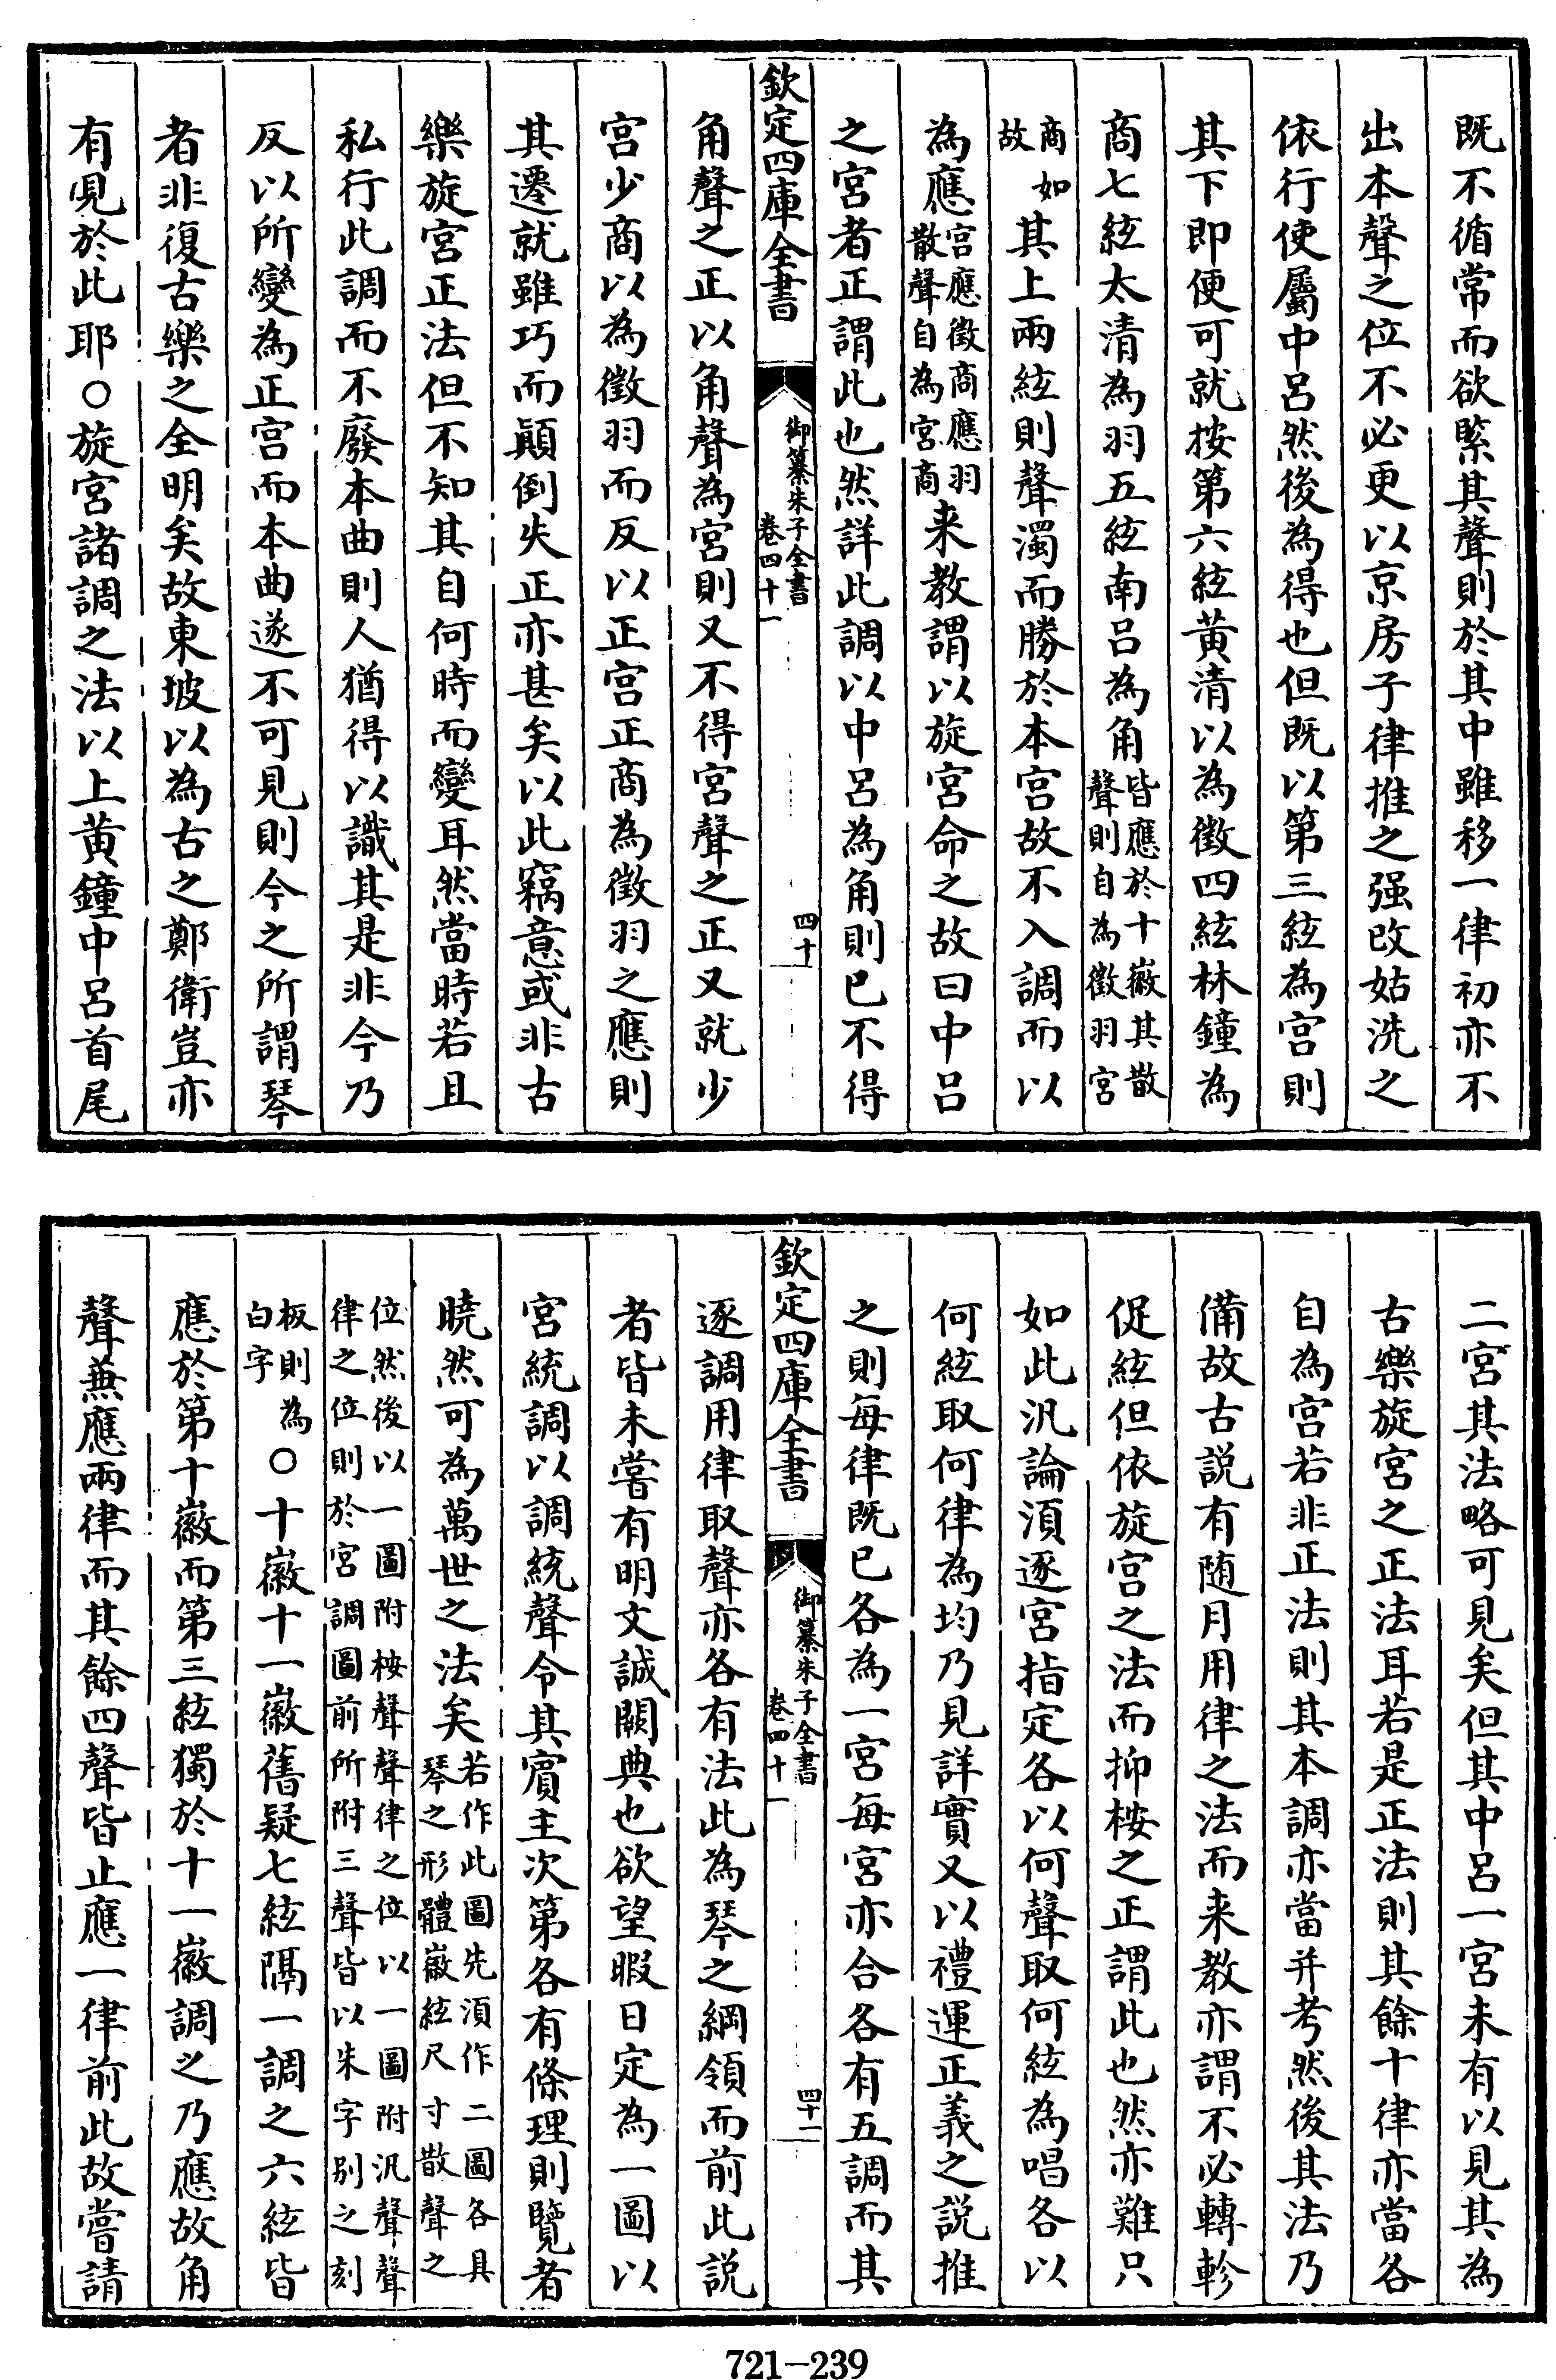 既不循常而欲緊其聲則於其中雖移一律初亦不
出本聲之位不必更以京房子律推之强改姑洗之
依行使屬中呂然後為得也但既以第三絃為宮則
其下即便可就按第六絃黄清以為徵四絃林鐘為
商七絃太清為羽五絃南呂為角皆應於十徽其散聲則自為徵羽宮
商如故其上兩絃則聲濁而勝於本宮故不入調而以
為應宮應徵商應羽散聲自為宮商来教謂以旋宮命之故曰中呂
之宮者正謂此也然詳此調以中呂為角則已不得
欽定四庫全書
御纂朱子全書
卷四十一
四十
角聲之正以角聲為宮則又不得宮聲之正又就少
宮少商以為徵羽而反以正宮正商為徵羽之應則
其遷就雖巧而顛倒失正亦甚矣以此竊意或非古
樂旋宮正法但不知其自何時而變耳然當時若且
私行此調而不廢本曲則人猶得以識其是非今乃
反以所變為正宮而本曲遂不可見則今之所謂琴
者非復古樂之全明矣故東坡以為古之鄭衛豈亦
有見於此耶○旋宮諸調之法以上黄鐘中呂首尾
二宮其法略可見矣但其中呂一宮未有以見其為
古樂旋宮之正法耳若是正法則其餘十律亦當各
自為宮若非正法則其本調亦當并考然後其法乃
備故古説有随月用律之法而来教亦謂不必轉軫
促絃但依旋宮之法而抑按之正謂此也然亦難只
如此汎論湏逐宮指定各以何聲取何絃為唱各以
何絃取何律為均乃見詳實又以禮運正義之説推
之則每律既已各為一宮每宮亦合各有五調而其
欽定四庫全書
御纂朱子全書
卷四十一
四十一
逐調用律取聲亦各有法此為琴之綱領而前此説
者皆未嘗有明文誠闕典也欲望暇日定為一圖以
宮統調以調統聲令其賓主次第各有條理則覽者
曉然可為萬世之法矣若作此圖先湏作二圖各具琴之形體徽絃尺寸散聲之
位然後以一圖附按聲聲律之位以一圖附汎聲聲律之位則於宮調圖前所附三聲皆以朱字别之刻
板則為白字○十徽十一徽舊疑七絃隔一調之六絃皆
應於第十徽而第三絃獨於十一徽調之乃應故角
聲兼應兩律而其餘四聲皆止應一律前此故嘗請
721-239